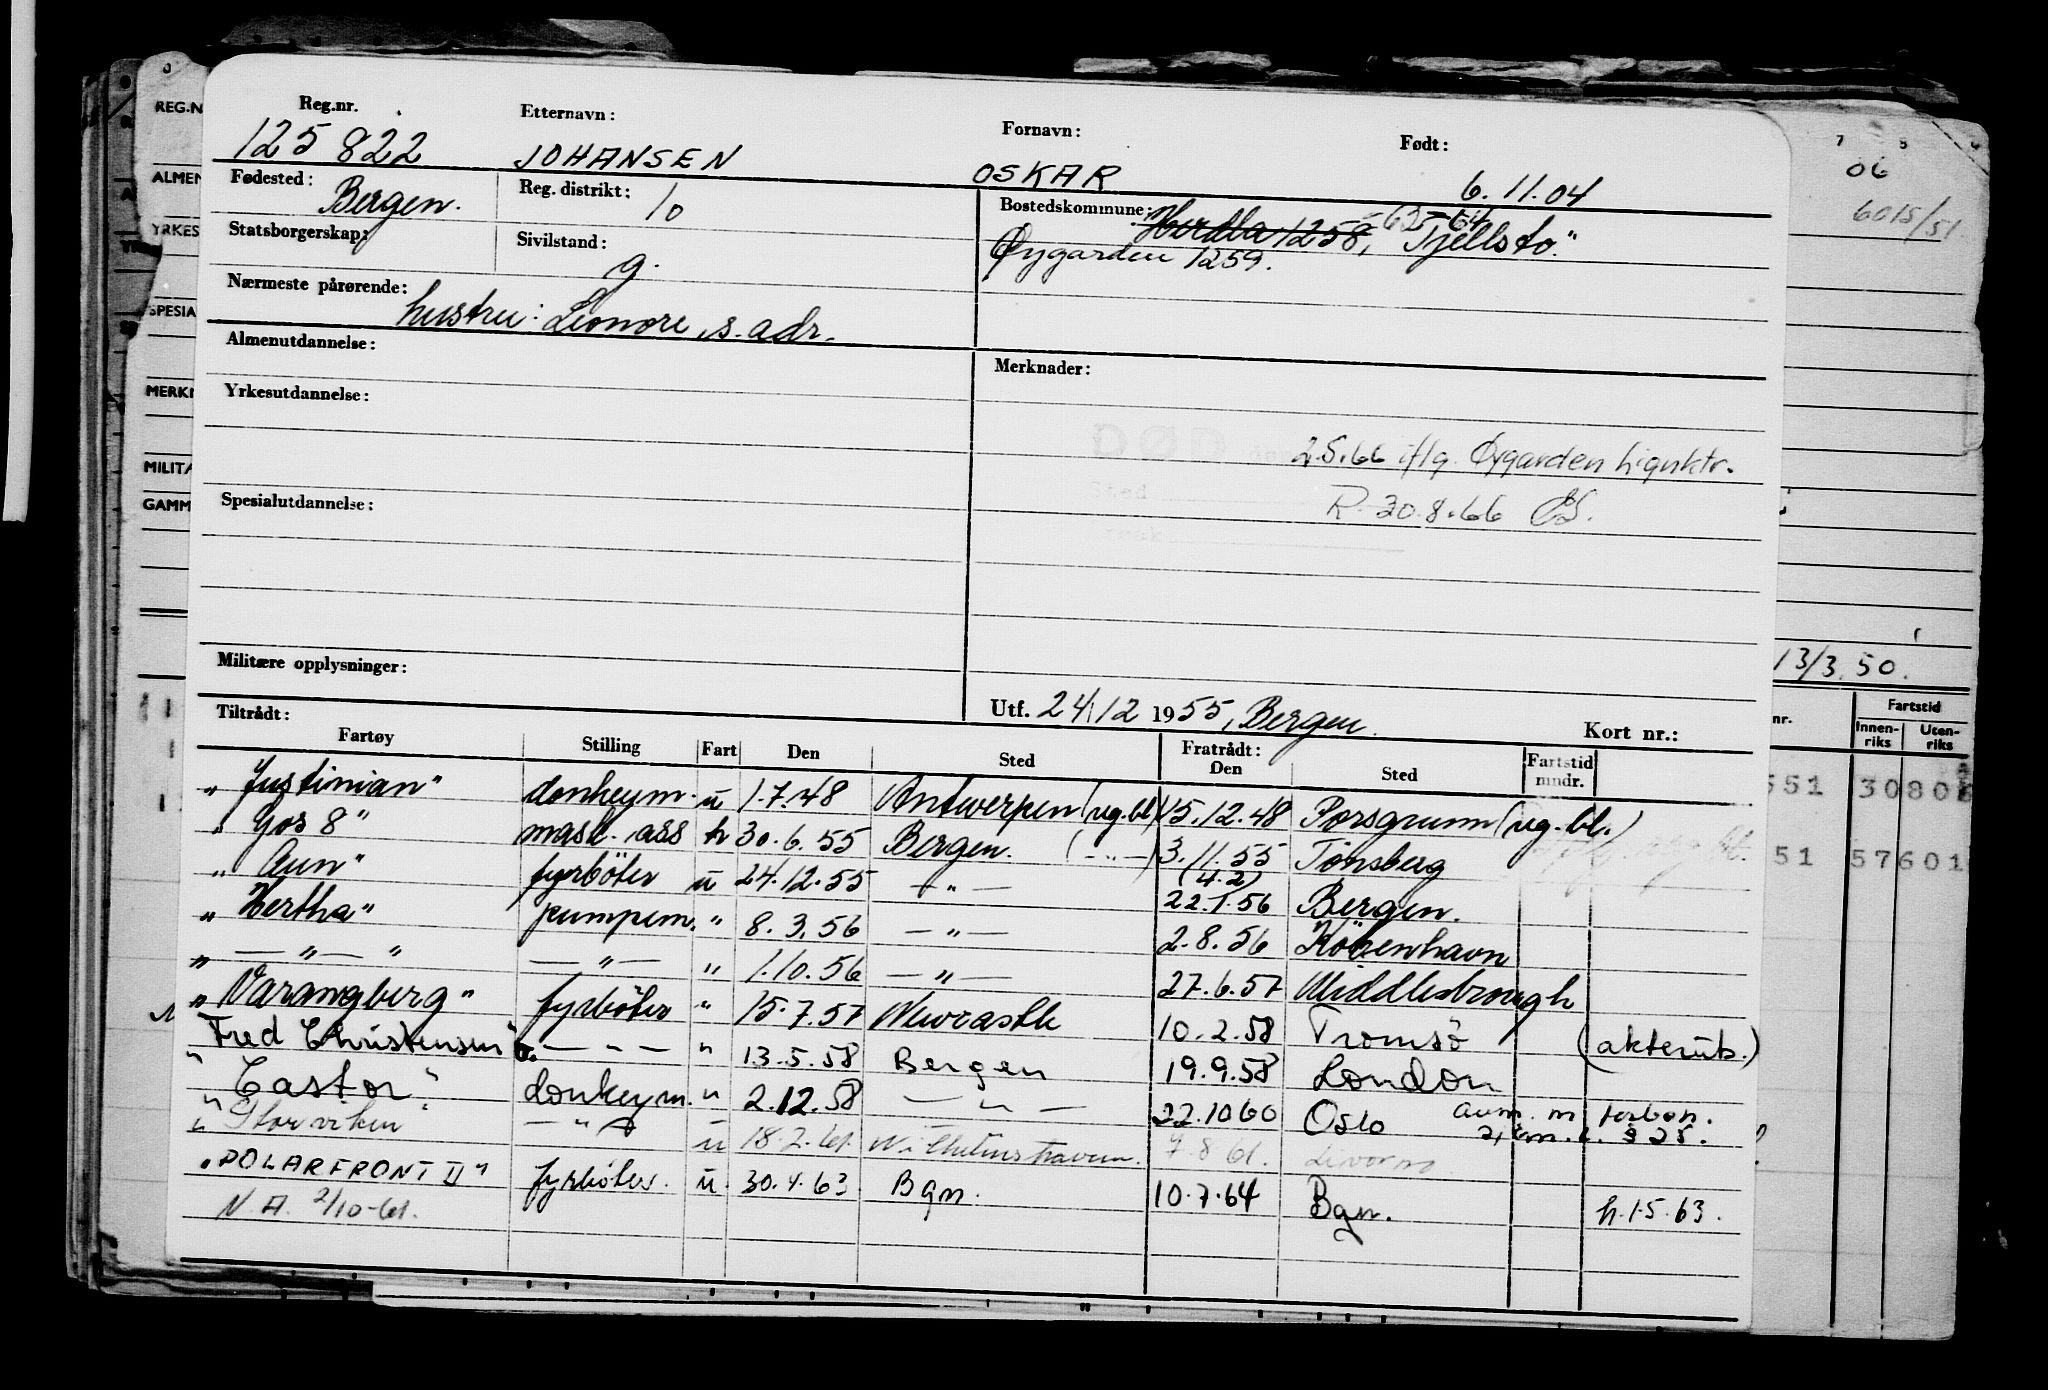 Reg.nr. Etternavn: Fornavn: Født:
125822 JOHANSEN OSKAR 6.11.04
Fødested: Bergen. Reg. distrikt: 10 Bostedskommune: Herdla 1258, -63 -64 "Tjeldstø."
Statsborgerskap: Sivilstand: g. Øygarden 1259.
Nærmeste pårørende: hustru: Leonore, s. adr.
Almenutdannelse: Merknader:
Yrkesutdannelse:
DØD 2.5.66 iflg. Øygarden lignktr.
Sted
Spesialutdannelse: R. 30.8.66
Militære opplysninger:
Utf. 24/12 1955, Bergen.
Tiltrådt: Kort nr.:
Fartøy Stilling Fart Den Sted Fratrådt: Den Sted Fartstid mndr.
"Justinian" donkeym. u 1.7.48 Antwerpen (ug.bl) 15.12.48 Porsgrunn (ug.bl.)
"Gos 8" mask. ass h 30.6.55 Bergen. (—"—) 3.11.55 Tønsberg
"Aun" fyrbøter u 24.12.55 —"— (4.2) 22.1.56 Bergen.
"Hertha" pumpem. " 8.3.56 —"— 2.8.56 København
" —"— " —"— " 1.10.56 —"— 27.6.57 Middlesbrough
"Varangberg" fyrbøter " 15.7.57 Newcastle 10.2.58 Tromsö (akterutb.)
"Fred Christensen" —"— " 13.5.58 Bergen 19.9.58 London
"Castor" donkeym. " 2.12.58 —"— 22.10 60 Oslo
"Storviken —"— u 18.2.61. Wilhelmshaven. 7.8 61. Livorno
"POLARFRONT II" fyrbøter. u. 30.4.63 Bgn. 10.7.64 Bgn. h.1.5.63.
N.A. 2/10-61.
REG.N
ALMEN
YRKES
SPESIA
MERKN
MILITÆ
GAMM
06
6015/51.
13/3.50.
nr. Fartstid
Innen-riks Uten-riks
551 3080
51 57601